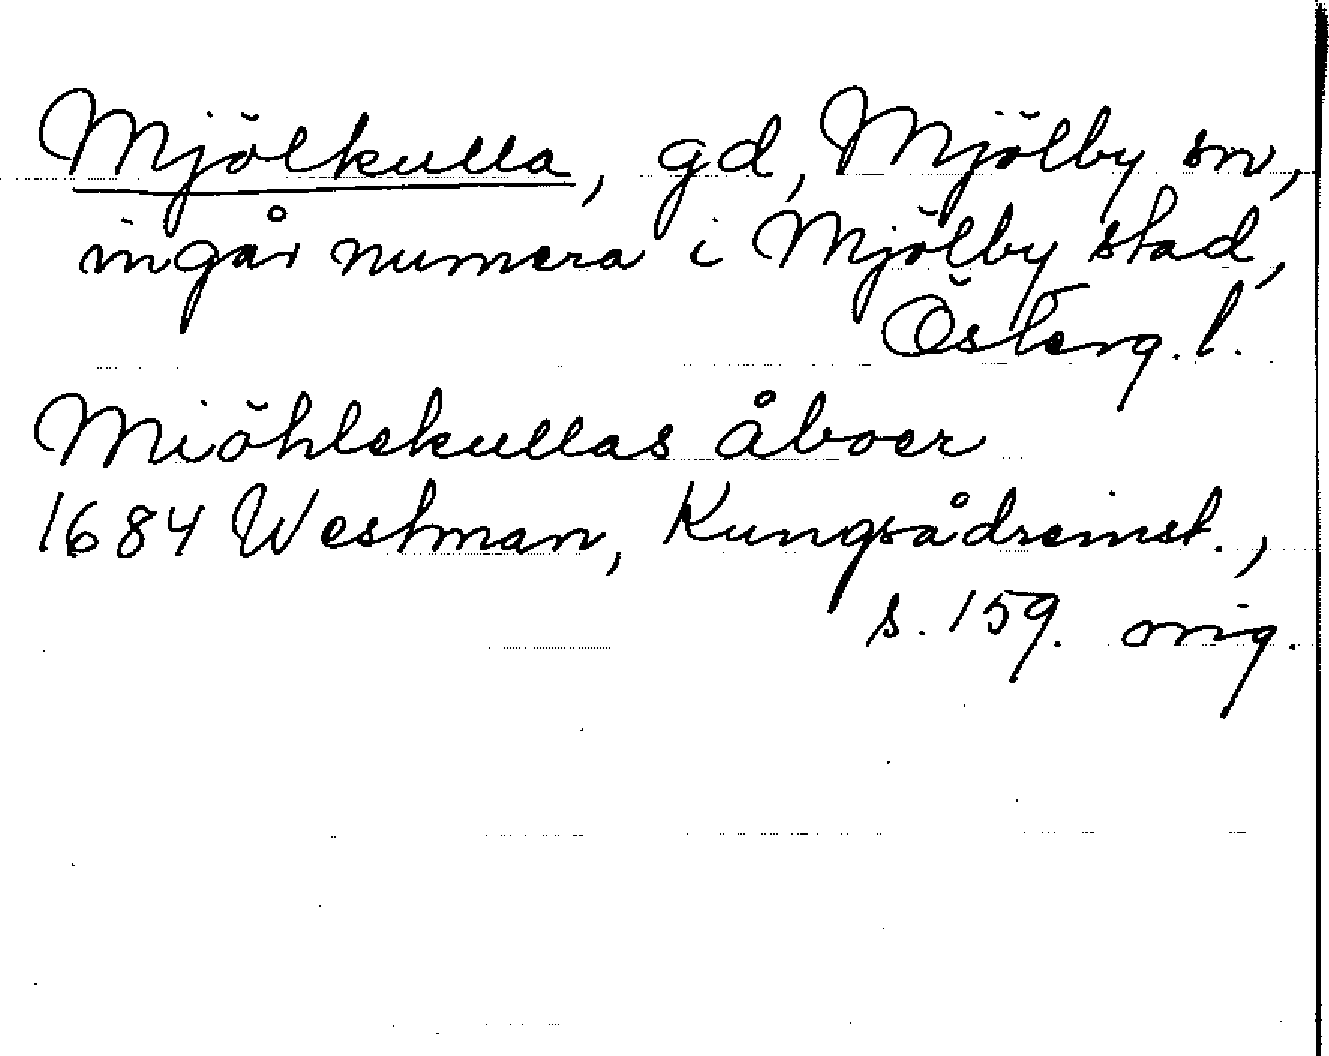 Mjölkulla, gd, Mjölby sn,
ingår numera i Mjölby stad,
Österg. l.
Miöhlekullas åboer
1684 Westman, Kungsådreinst.,
s. 159. orig.